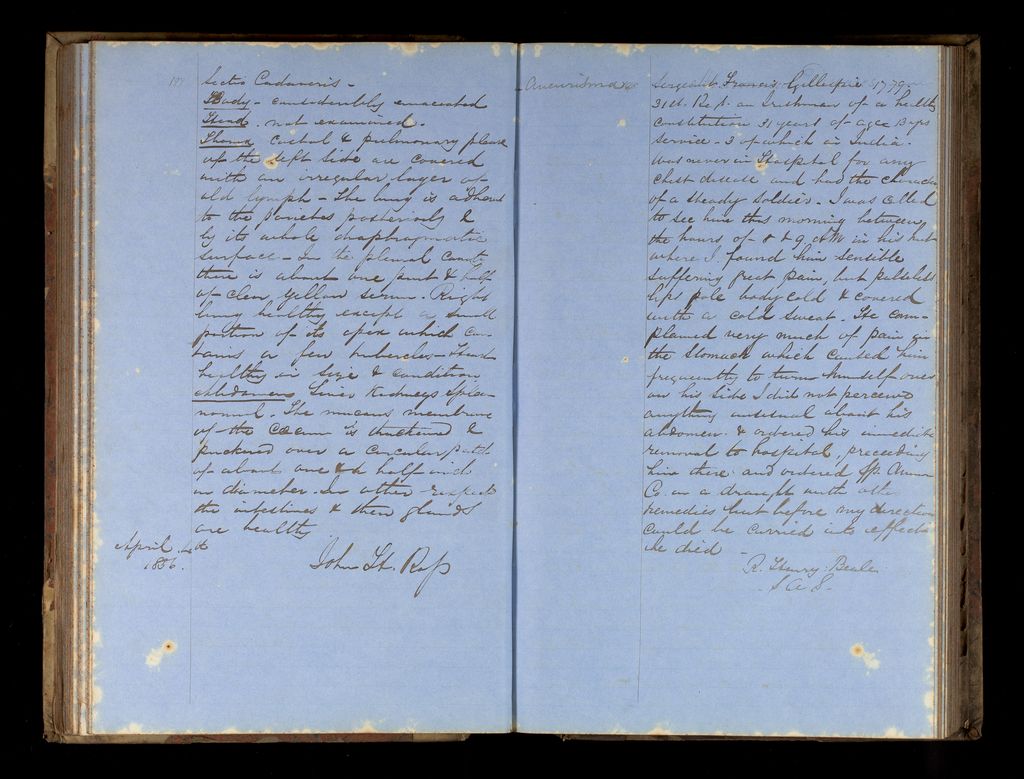 Sectio Cadaveris -
Body - considerably emaciated
Head - not examined -
Thorax costal & pulmonary pleura
of the left side are covered
with an irregular layer of
old lymph - The lung is adherent
to the parietes posteriorly &
by its whole diaphragmatic
surface - In the pleural cavity
there is about one pint & half
of clear yellow serum - Right
lung healthy except a small
portion of its apex which con-
tains a few tubercles - Heart
healthy in size & condition
Abdomen Liver Kidneys Spleen
normal. The mucous membrane
of the Cæcum is thickened &
puckered over a circular patch
of about one & a half inch
in diameter. In other respects
the intestines & their glands
are healthy
April
1856.
John H. Ross
Aneurisma
Sergeant Francis Gillespie 1779
31st. Regt. an Irishman of a healthy
constitution 31 years of age
service - 3 of which in India -
was never in Hospital for any
chest disease and had the character
of a steady soldier. I was called
to see him this morning between
the hours of 8 & 9 AM in his hut
where I found him sensible
suffering great pain, but pulseless
lips pale body cold & covered
with a cold sweat. He com-
plained very much of pain in
the stomach which caused him
frequently to turn himself over
on his side I did not perceive
anything unusual about his
abdomen. & ordered his immediate
removal to hospital, preceeding
him there and ordered Sp. Ammon
Co. in a draught with other
remedies but before my directions
could be carried into effect
he died -
R. Henry Beale
S A S -